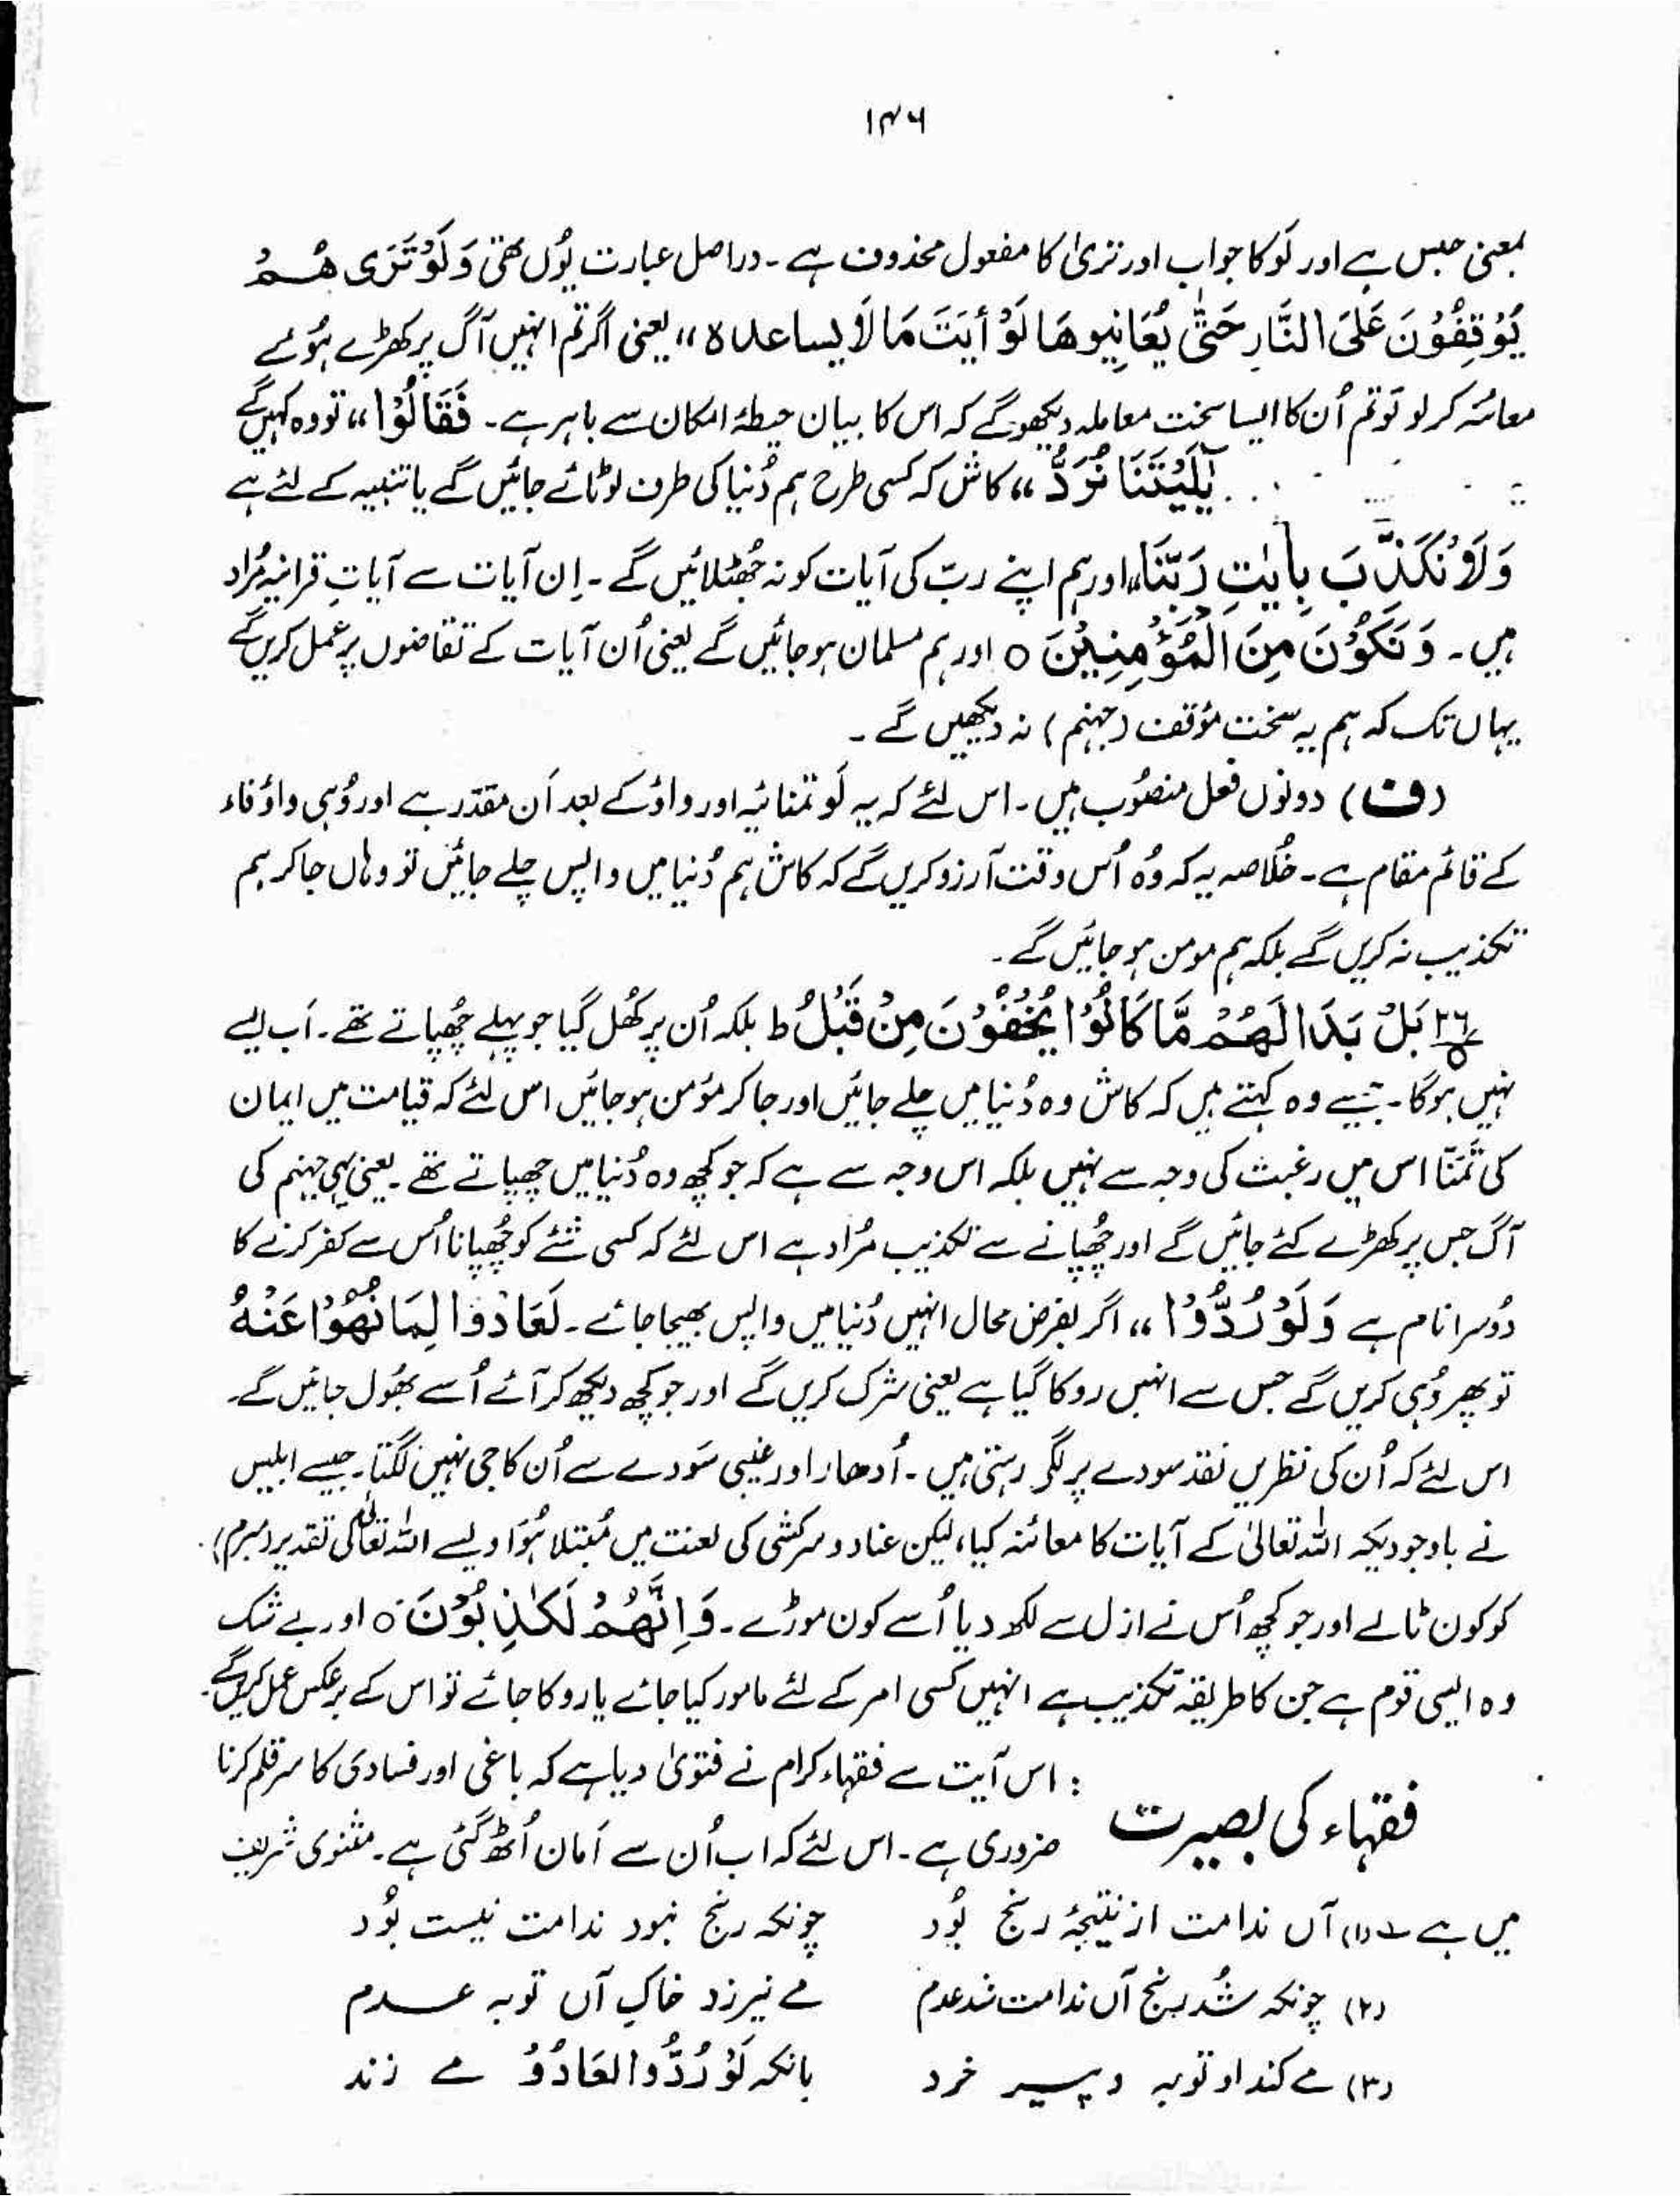 ۱۴۶
بمعنی حبس ہے اور لَو کا جواب اور ترٰی کا مفعول محذوف ہے ۔ دراصل عبارت یُوں تھی وَلَوْ تَرٰی هُمْ
یُوْقِفُوْنَ عَلَی النَّارِ حَتّٰی یُعَانِیوهَا لَوْ أیَتَ مَا لَا یساعدہ ،، یعنی اگر تم انہیں آگ پر کھڑے ہُوئے
معائنہ کر لو تو تم اُن کا ایسا سخت معاملہ دیکھو گے کہ اس کا بیان حیطۂ امکان سے باہر ہے ۔ فَقَالُوْا ،، تو وہ کہیں گے
یٰلَیْتَنَا نُرَدُّ ،، کاش کہ کسی طرح ہم دُنیا کی طرف لوٹائے جائیں گے یا تنبیہ کے لئے ہے
وَلَا نُكَذِّبَ بِاٰیٰتِ رَبِّنَا ،، اور ہم اپنے ربّ کی آیات کو نہ جُھٹلائیں گے ۔ اِن آیات سے آیاتِ قرانیہ مُراد
ہیں ۔ وَنَكُوْنَ مِنَ الْمُؤْمِنِیْنَ ○ اور ہم مسلمان ہو جائیں گے یعنی اُن آیات کے تقاضوں پر عمل کریں گے
یہاں تک کہ ہم یہ سخت مؤقف (جہنم) نہ دیکھیں گے ۔
(ف) دونوں فعل منصُوب ہیں ۔ اس لئے کہ یہ لَو تمنائیہ اور واؤ کے بعد اَن مقدّر ہے اور وُہی واؤ فاء
کے قائم مقام ہے ۔ خُلاصہ یہ کہ وُہ اُس وقت آرزو کریں گے کہ کاش ہم دُنیا میں واپس چلے جائیں تو وہاں جا کر ہم
تکذیب نہ کریں گے بلکہ ہم مومن ہو جائیں گے ۔
بَلْ بَدَا لَهُمْ مَّا كَانُوْا یُخْفُوْنَ مِنْ قَبْلُ ط بلکہ اُن پر کُھل گیا جو پہلے چُھپاتے تھے ۔ اَب ایسے
نہیں ہوگا ۔ جیسے وہ کہتے ہیں کہ کاش وہ دُنیا میں چلے جائیں اور جا کر مؤمن ہو جائیں اس لئے کہ قیامت میں ایمان
کی تَمَنّا اس میں رغبت کی وجہ سے نہیں بلکہ اس وجہ سے ہے کہ جو کچھ وہ دُنیا میں چھپاتے تھے ۔ یعنی یہی جہنم کی
آگ جس پر کھڑے کئے جائیں گے اور چُھپانے سے تکذیب مُراد ہے اس لئے کہ کسی شئے کو چُھپانا اُس سے کفر کرنے کا
دُوسرا نام ہے وَلَوْ رُدُّوْا ،، اگر بفرض محال انہیں دُنیا میں واپس بھیجا جائے ۔ لَعَادُوا لِمَا نُهُوْا عَنْهُ
تو پھر وُہی کریں گے جس سے انہیں روکا گیا ہے یعنی شرک کریں گے اور جو کچھ دیکھ کر آئے اُسے بُھول جائیں گے ۔
اس لئے کہ اُن کی نظریں نقد سودے پر لگی رہتی ہیں ۔ اُدھار اور غیبی سَودے سے اُن کا جی نہیں لگتا ۔ جیسے ابلیس
نے باوجودیکہ اللہ تعالیٰ کے آیات کا معائنہ کیا ، لیکن عناد و سرکشی کی لعنت میں مُبتلا ہُوا ویسے اللہ تعالیٰ کی تقدیر (مبرم)
کو کون ٹالے اور جو کچھ اُس نے ازل سے لکھ دیا اُسے کون موڑے ۔ وَاِنَّهُمْ لَكٰذِبُوْنَ ○ اور بے شک
وہ ایسی قوم ہے جن کا طریقہ تکذیب ہے انہیں کسی امر کے لئے مامور کیا جائے یا روکا جائے تو اس کے برعکس عمل کریں گے ۔
فقہاء کی بصیرت : اس آیت سے فقہاء کرام نے فتویٰ دیا ہے کہ باغی اور فسادی کا سر قلم کرنا
ضروری ہے ۔ اس لئے کہ اب اُن سے اَمان اُٹھ گئی ہے ۔ مثنوی شریف
میں ہے ؎ (۱) آں ندامت از نتیجۂ رنج بُود چونکہ رنج نبود ندامت نیست بُود
(۲) چونکہ شُد رنج آں ندامت شد عدم مے نیرزد خاکِ آں توبہ عدم
(۳) مے کند او توبہ و پیر خرد بانگہ لَوْ رُدُّوا لعَادُوْ مے زند